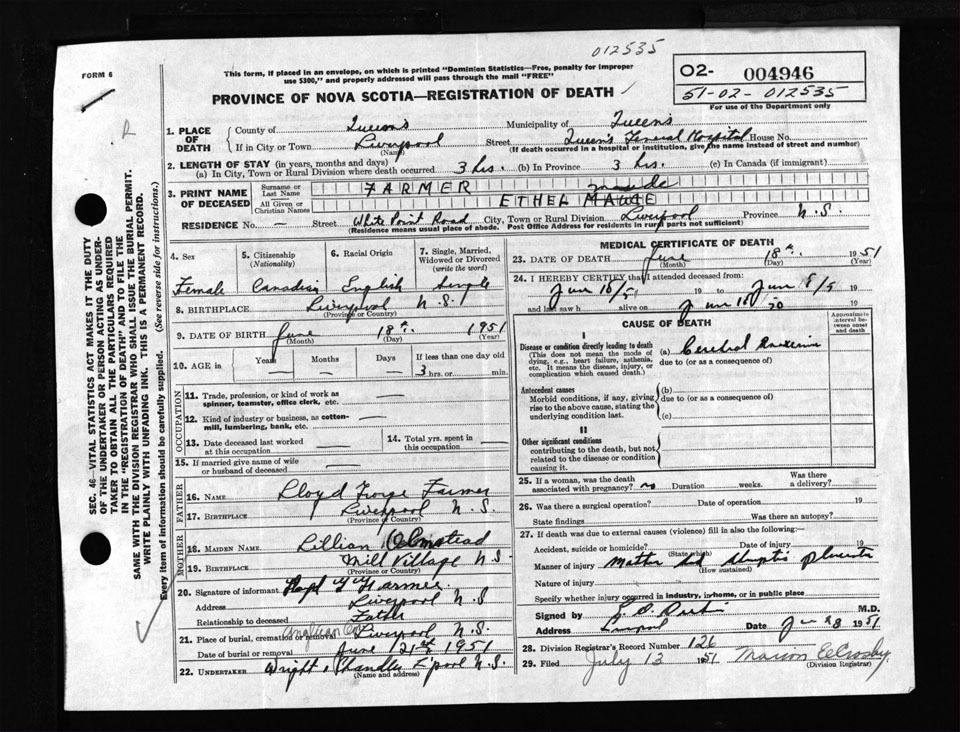 012535
FORM 6
This form, if placed in an envelope, on which is printed "Dominion Statistics—Free, penalty for improper
use $300," and properly addressed will pass through the mail "FREE"
O2- 004946
51-02-012535
For use of the Department only
PROVINCE OF NOVA SCOTIA—REGISTRATION OF DEATH
1. PLACE OF DEATH
County of Queen's Municipality of Queen's
If in City or Town Liverpool Street Queen's General Hospital House No.
(Name) (If death occurred in a hospital or institution, give the name instead of street and number)
2. LENGTH OF STAY (in years, months and days)
(a) In City, Town or Rural Division where death occurred 3 hrs. (b) In Province 3 hrs. (c) In Canada (if immigrant)
3. PRINT NAME OF DECEASED
Surname or Last Name FARMER
All Given or Christian Names ETHEL MAUDE
maude
RESIDENCE No. — Street White Point Road City, Town or Rural Division Liverpool Province N.S.
(Residence means usual place of abode. Post Office Address for residents in rural parts not sufficient)
SEC. 46—VITAL STATISTICS ACT MAKES IT THE DUTY
OF THE UNDERTAKER OR PERSON ACTING AS UNDER-
TAKER TO OBTAIN ALL THE PARTICULARS REQUIRED
IN THE "REGISTRATION OF DEATH" AND TO FILE THE
SAME WITH THE DIVISION REGISTRAR WHO SHALL ISSUE THE BURIAL PERMIT.
WRITE PLAINLY WITH UNFADING INK. THIS IS A PERMANENT RECORD.
Every item of information should be carefully supplied. (See reverse side for instructions.)
4. Sex
Female
5. Citizenship
(Nationality)
Canadian
6. Racial Origin
English
7. Single, Married,
Widowed or Divorced
(write the word)
Single
8. BIRTHPLACE Liverpool N.S.
(Province or Country)
9. DATE OF BIRTH June 18th. 1951
(Month) (Day) (Year)
10. AGE in Years Months Days If less than one day old
— — — 3 hrs. or min.
OCCUPATION
11. Trade, profession, or kind of work as
spinner, teamster, office clerk, etc. —
12. Kind of industry or business, as cotton-
mill, lumbering, bank, etc. —
13. Date deceased last worked
at this occupation —
14. Total yrs. spent in
this occupation —
15. If married give name of wife
or husband of deceased —
FATHER
16. NAME Lloyd George Farmer
17. BIRTHPLACE Liverpool N.S.
(Province or Country)
MOTHER
18. MAIDEN NAME Lillian Olmstead
19. BIRTHPLACE Mill Village N.S
(Province or Country)
20. Signature of informant Farmer.
Address Liverpool N.S
Relationship to deceased Father
21. Place of burial, cremation or removal Anglican Liverpool N.S.
Date of burial or removal June 21st 1951
22. UNDERTAKER Wright & Chandler L'pool N.S.
(Name and address)
MEDICAL CERTIFICATE OF DEATH
23. DATE OF DEATH June 18th. 1951
(Month) (Day) (Year)
24. I HEREBY CERTIFY that I attended deceased from:
Jun 18/51 19 to Jun 18/51 19
and last saw h alive on Jun 18 19
CAUSE OF DEATH
Approximate
interval between
onset
and death
I
Disease or condition directly leading to death
(This does not mean the mode of
dying, e.g., heart failure, asthenia,
etc. It means the disease, injury, or
complication which caused death.)
(a) Cerebral
due to (or as a consequence of)
Antecedent causes
Morbid conditions, if any, giving
rise to the above cause, stating the
underlying condition last.
(b)
due to (or as a consequence of)
(c)
II
Other significant conditions
contributing to the death, but not
related to the disease or condition
causing it.
25. If a woman, was the death
associated with pregnancy? no Duration weeks. Was there
a delivery?
26. Was there a surgical operation? Date of operation 19
State findings Was there an autopsy?
27. If death was due to external causes (violence) fill in also the following:—
Accident, suicide or homicide? Date of injury 19
(State which)
Manner of injury Mother had placenta
(How sustained)
Nature of injury
Specify whether injury occurred in industry, in home, or in public place
Signed by M.D.
Address Liverpool Date Jun 28 1951
28. Division Registrar's Record Number 126
29. Filed July 13 1951 Marion E Crosby
(Division Registrar)